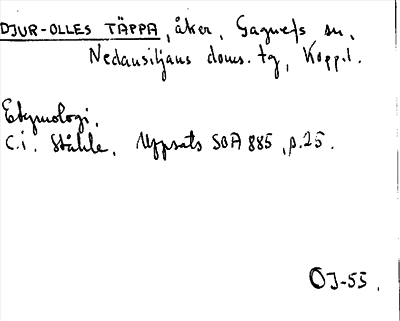 DJUR-OLLES TÄPPA, åker, Gagnefs sn,
Nedansiljans doms. tg, Kopp.l.
Etymologi.
C.I. Ståhle, Uppsats SOA 885, p.25.
OJ-55.